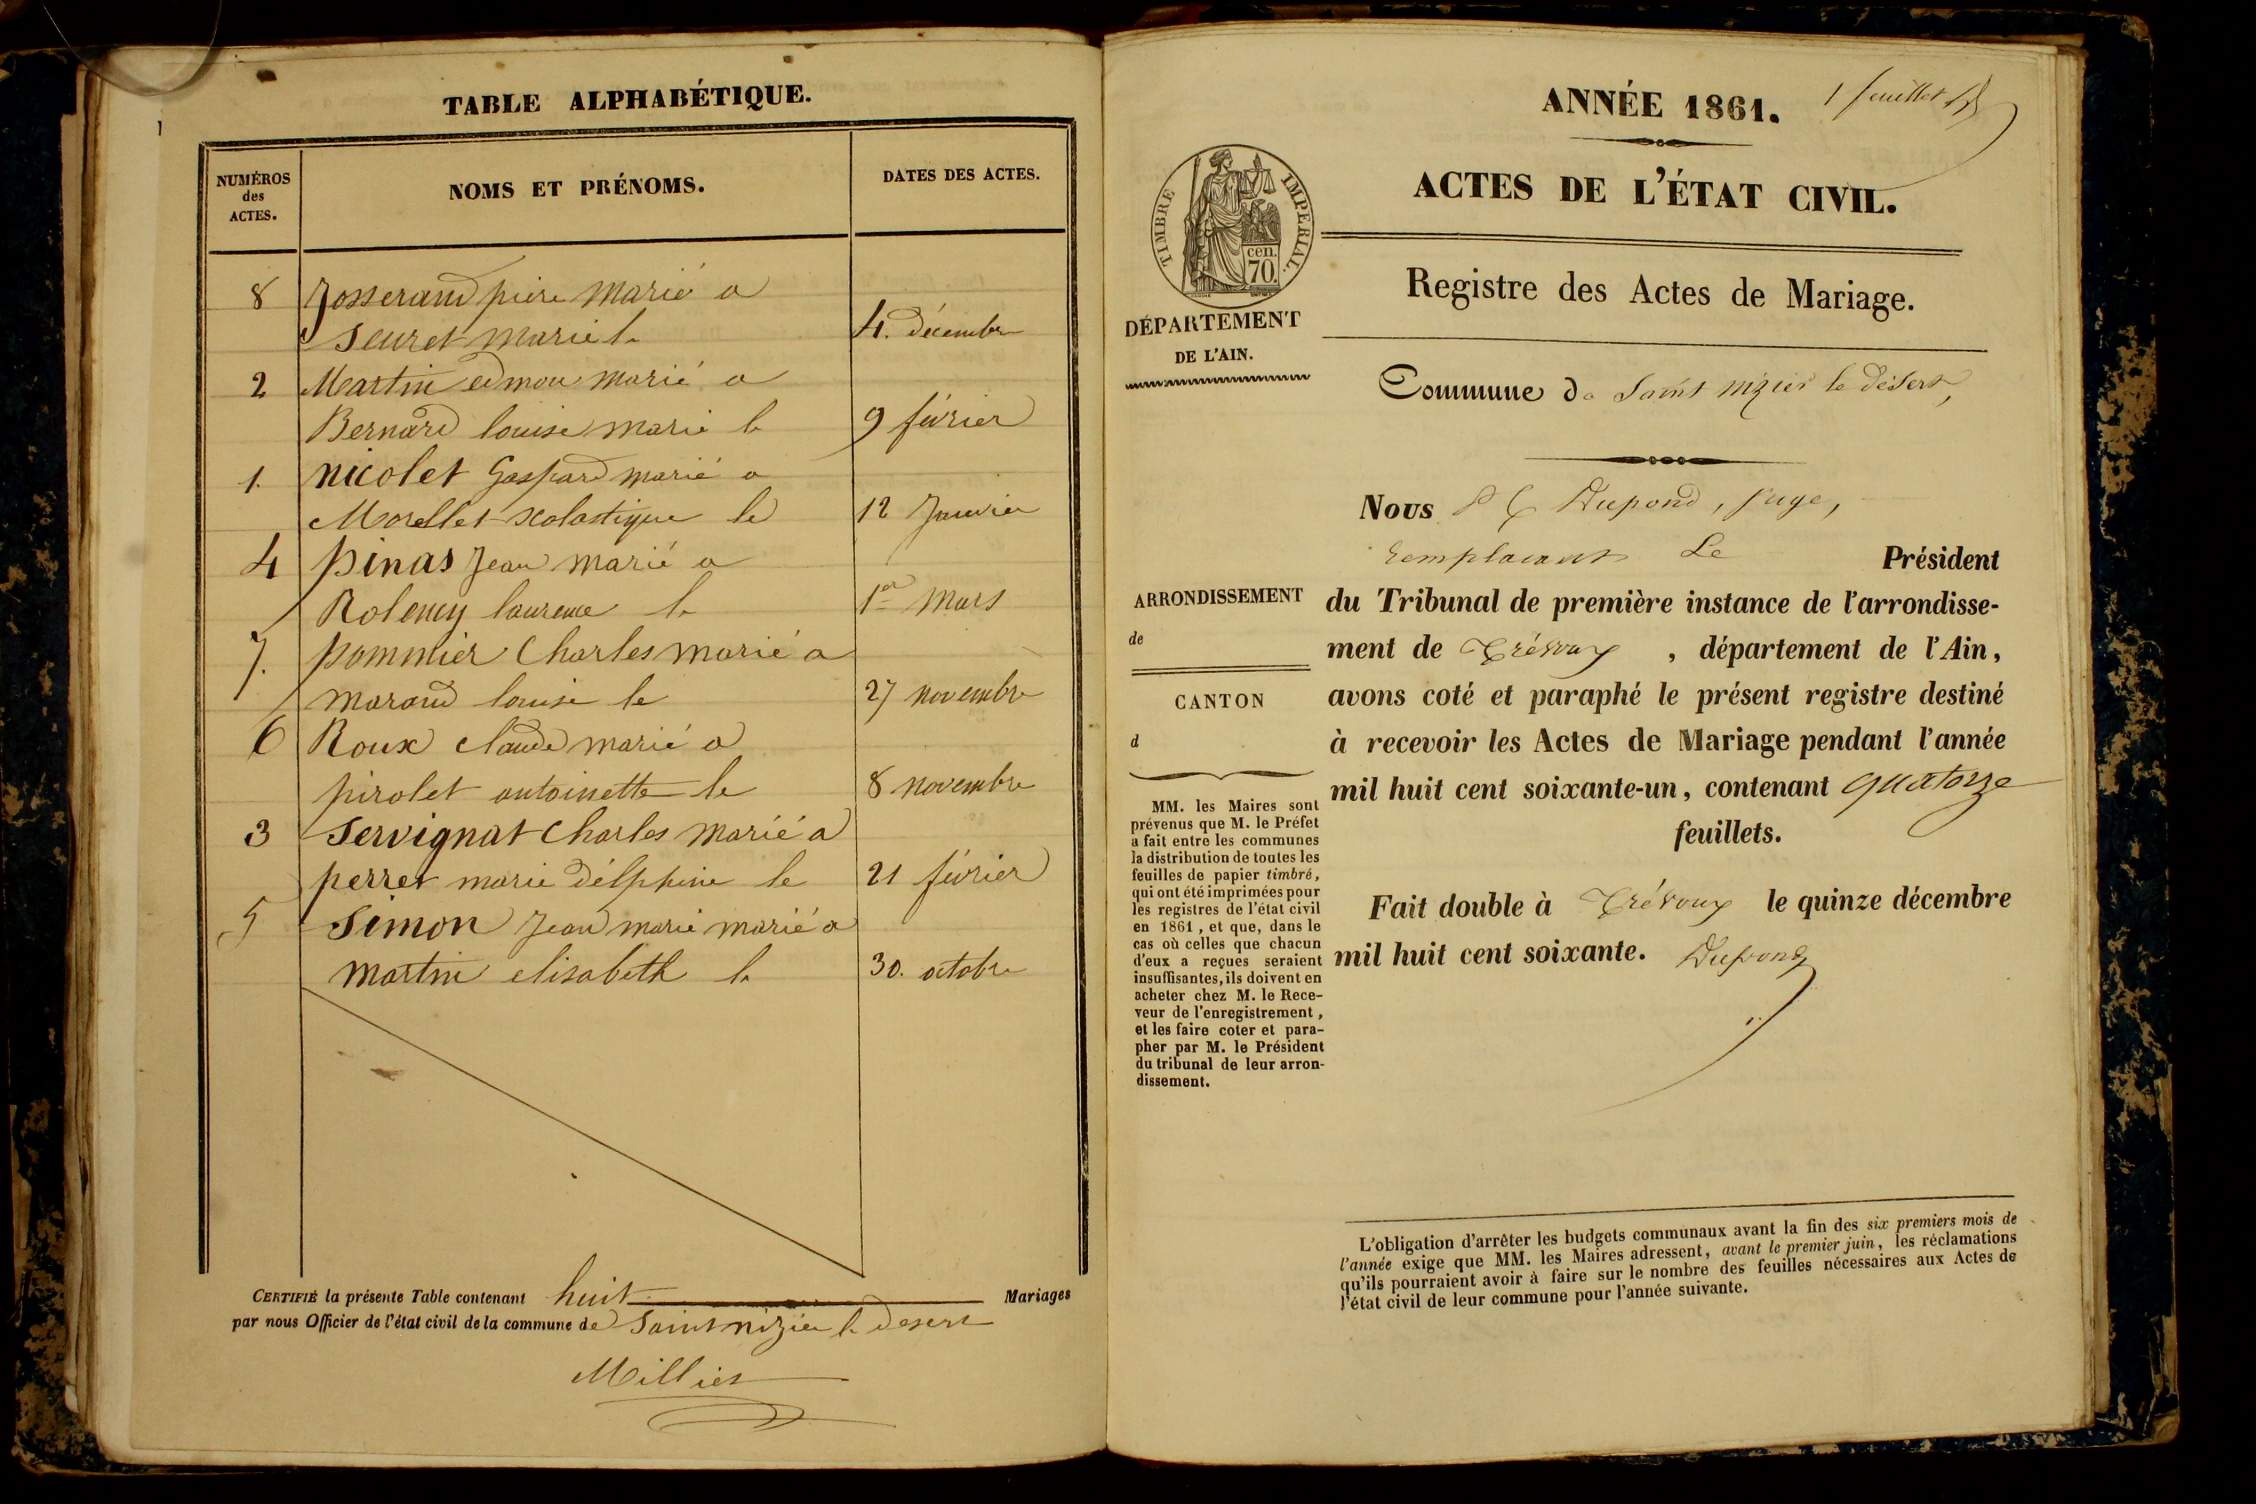 TABLE ALPHABÉTIQUE.
NUMÉROS
des
ACTES.
NOMS ET PRÉNOMS.
DATES DES ACTES.
8 Josserand pierre marié a
Seuret marie le 4. décembre
2 Martin edmon marié a
Bernard louise marie le 9 février
1. nicolet Gaspard marié a
Morellet scolastique le 12 Janvier
4 pinas Jean marié a
Rolency laurence le 1er mars
7. pommier Charles marié a
marand louise le 27 novembre
6 Roux claude marié a
pirolet antoinette le 8 novembre
3 Servignat Charles marié a
perret marie délphine le 21 février
5 Simon Jean marie marié a
martin elisabeth le 30. octobre
CERTIFIÉ la présente Table contenant huit Mariages
par nous Officier de l'état civil de la commune de Saint nizier le desert
Millier
1 feuillet
ANNÉE 1861.
ACTES DE L'ÉTAT CIVIL.
TIMBRE IMPERIAL.
cen.
70.
Registre des Actes de Mariage.
DÉPARTEMENT
DE L'AIN.
Commune de Saint nizier le désert,
Nous Dupond, juge,
remplacant Le Président
ARRONDISSEMENT
de
CANTON
d
du Tribunal de première instance de l'arrondisse-
ment de Trévoux, département de l'Ain,
avons coté et paraphé le présent registre destiné
à recevoir les Actes de Mariage pendant l'année
mil huit cent soixante-un, contenant quatorze
feuillets.
Fait double à Trévoux le quinze décembre
mil huit cent soixante. Dupond
MM. les Maires sont
prévenus que M. le Préfet
a fait entre les communes
la distribution de toutes les
feuilles de papier timbré,
qui ont été imprimées pour
les registres de l'état civil
en 1861, et que, dans le
cas où celles que chacun
d'eux a reçues seraient
insuffisantes, ils doivent en
acheter chez M. le Rece-
veur de l'enregistrement,
et les faire coter et para-
pher par M. le Président
du tribunal de leur arron-
dissement.
L'obligation d'arrêter les budgets communaux avant la fin des six premiers mois de
l'année exige que MM. les Maires adressent, avant le premier juin, les réclamations
qu'ils pourraient avoir à faire sur le nombre des feuilles nécessaires aux Actes de
l'état civil de leur commune pour l'année suivante.